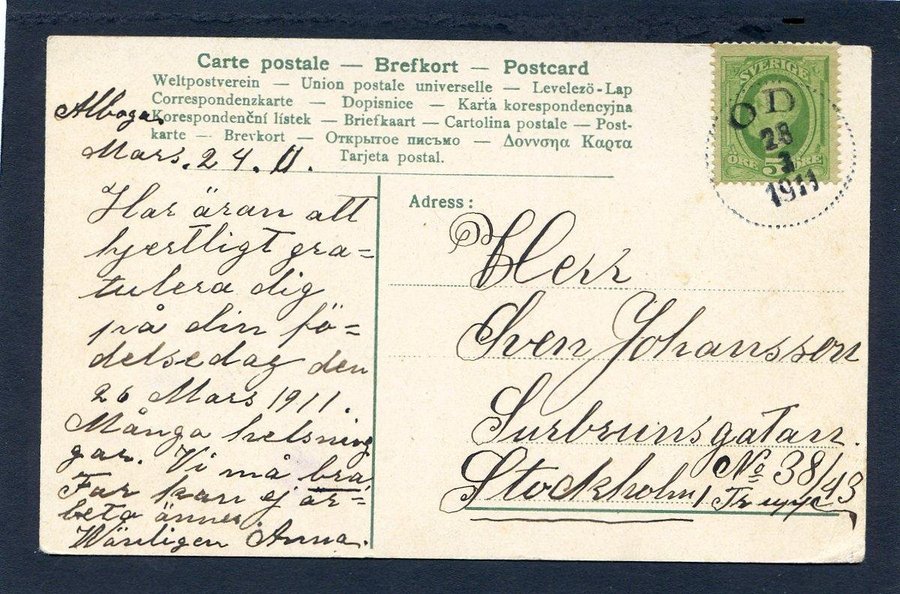 Carte postale — Brefkort — Postcard
Weltpostverein — Union postale universelle — Levelező-Lap
Correspondenzkarte — Dopisnice — Karta korespondencyjna
Korespondenční lístek — Briefkaart — Cartolina postale — Post-
karte — Brevkort — Открытое письмо — Δονυσηα Καρτα
Tarjeta postal.
Alboga.
Mars. 24. 11.
Har äran att
hjertligt gra=
tulera dig
på din fö=
delsedag den
26 Mars 1911.
Många helsning
gar. Vi må bra,
Far kan ej ar=
beta ännu
Wänligen Anna.
SVERIGE
ÖRE 5 ÖRE
OD
28
3
1911
Adress:
Herr
Sven Johansson
Surbrunsgatan.
No 38/43
Stockholm